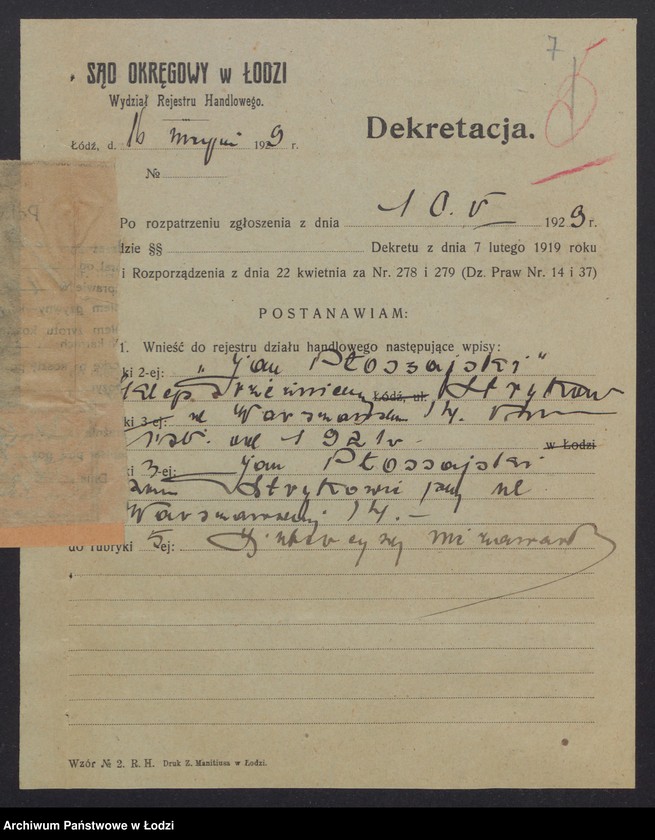 7
SĄD OKRĘGOWY w ŁODZI
Wydział Rejestru Handlowego.
Łódź, d. 16 1929 r.
Dekretacja.
№
Po rozpatrzeniu zgłoszenia z dnia 10. V 1929 r.
dzie §§ Dekretu z dnia 7 lutego 1919 roku
i Rozporządzenia z dnia 22 kwietnia za Nr. 278 i 279 (Dz. Praw Nr. 14 i 37)
POSTANAWIAM:
1. Wnieść do rejestru działu handlowego następujące wpisy:
ki 2-ej: „Jan Płoszajski"
Sklep rzeźniczy Łódź, ul. Stryków
ki 3-ej: ul Warszawska 14.
od 1921 r. w Łodzi
ki 3-ej: Jan Płoszajski
Strykowie przy ul
Warszawskiej 14. –
do rubryki 5ej:
Wzór № 2. R. H. Druk Z. Manitiusa w Łodzi.
Archiwum Państwowe w Łodzi